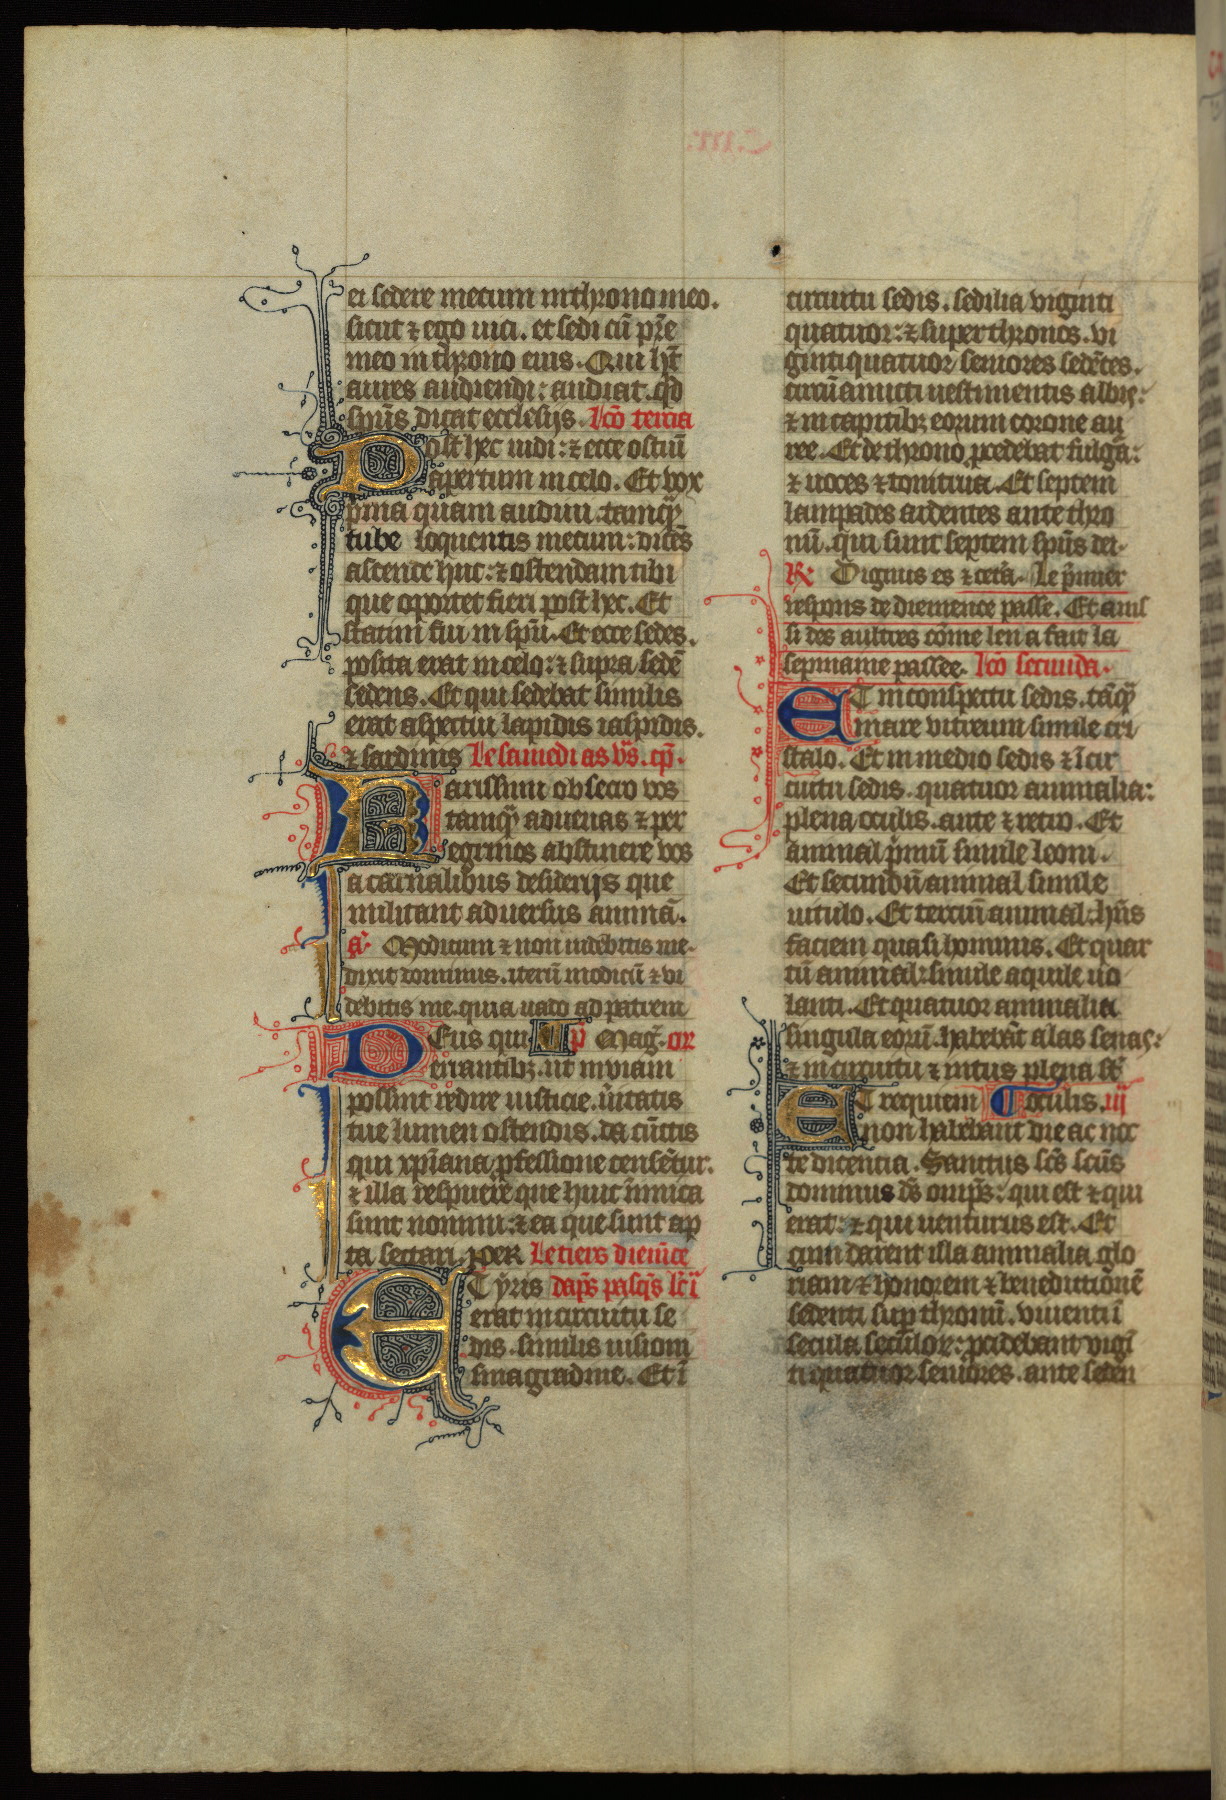 ei sedere mecum in throno meo.
sicut ⁊ ego uici. et sedi cū pr̄e
meo in throno eius. Qui hȝt
aures audiendi: audiat. qd̄
sp̄us dicat ecclesijs. lc̄o tercia
Post hec uidi: ⁊ ecce ostiū
apertum in celo. Et vox
p̄ma quam audiui tamqȝ
tube loquentis mecum: dicēs
ascende huc: ⁊ ostendam tibi
que oportet fieri post hec. Et
statim fui in sp̄u. Et ecce sedes.
posita erat in celo: ⁊ supra sedē
sedens. Et qui sedebat similis
erat aspectui lapidis iaspidis.
⁊ sardinis Le samedi as v̄s. cp̄.
Karissimi obsecro vos
tamqȝ aduenas ⁊ per
egrinos abstinere vos
a carnalibus desiderijs que
militant aduersus animā.
a͂. Modicum ⁊ non uidebitis me.
dixit dominus. iterū modicū ⁊ vi
debitis me. quia uado ad patrem
Deus qui p̄ Mag͂. or
errantibȝ. ut in viam
possint redire iusticie. ūitatis
tue lumen ostendis. da cūctis
qui xp̄iana p̄fessione censētur.
⁊ illa respuere que huic īnimica
sunt nomini. ⁊ ea que sunt ap
ta sectari. per Le tiers diem̄ce
ET yris dap̄s pasq̄s lc̄ i
erat in circuitu se
dis. similis uisioni
smaragdine. Et ī
circuitu sedis. sedilia viginti
quatuor: ⁊ super thronos. vi
gintiquatuor seniores sedētes.
circūamicti uestimentis albis:
⁊ in capitibȝ eorum corone au
ree. Et de throno p̄cedebāt fulgᵃ:
⁊ uoces ⁊ tonitrua. Et septem
lampades ardentes ante thro
nū. qui sunt septem sp̄us dei.
℟. Dignus es ⁊ cetᵃ. Le p̄mier
respons de diemence passe. Et ansi
si des aultres cōme len a fait la
sepmaine passee. lc̄o secunda.
ET in conspectu sedis. tāqȝ
mare vitreum simile cri
stalo. Et in medio sedis ⁊ ī cir
cuitu sedis. quatuor animalia:
plena oculis. ante ⁊ retro. Et
animal p̄mū simile leoni.
Et secundū animal simile
uitulo. Et terciū animal. hn̄s
faciem quasi hominis. Et quar
tū animal: simile aquile uo
lanti. Et quatuor animalia
singula eorū. habebāt alas senas:
⁊ in circuitu ⁊ intus plena st̄
ET requiem oculis. iij
non habebant die ac noc
te dicentia. Sanctus sc̄s scūs
dominus d̄s omp̄s: qui est ⁊ qui
erat: ⁊ qui uenturus est. Et
cum darent illa animalia glo
riam ⁊ honorem ⁊ benedictionē
sedenti sup thronū. viuenti ī
secula seculoꝝ: p̄cidebant vigī
tiquatuor seniores. ante seden